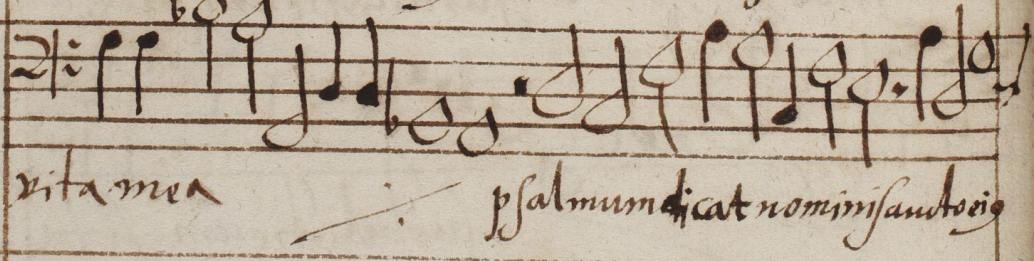 vita mea psalmum dicat nomini sancto eiꝰ